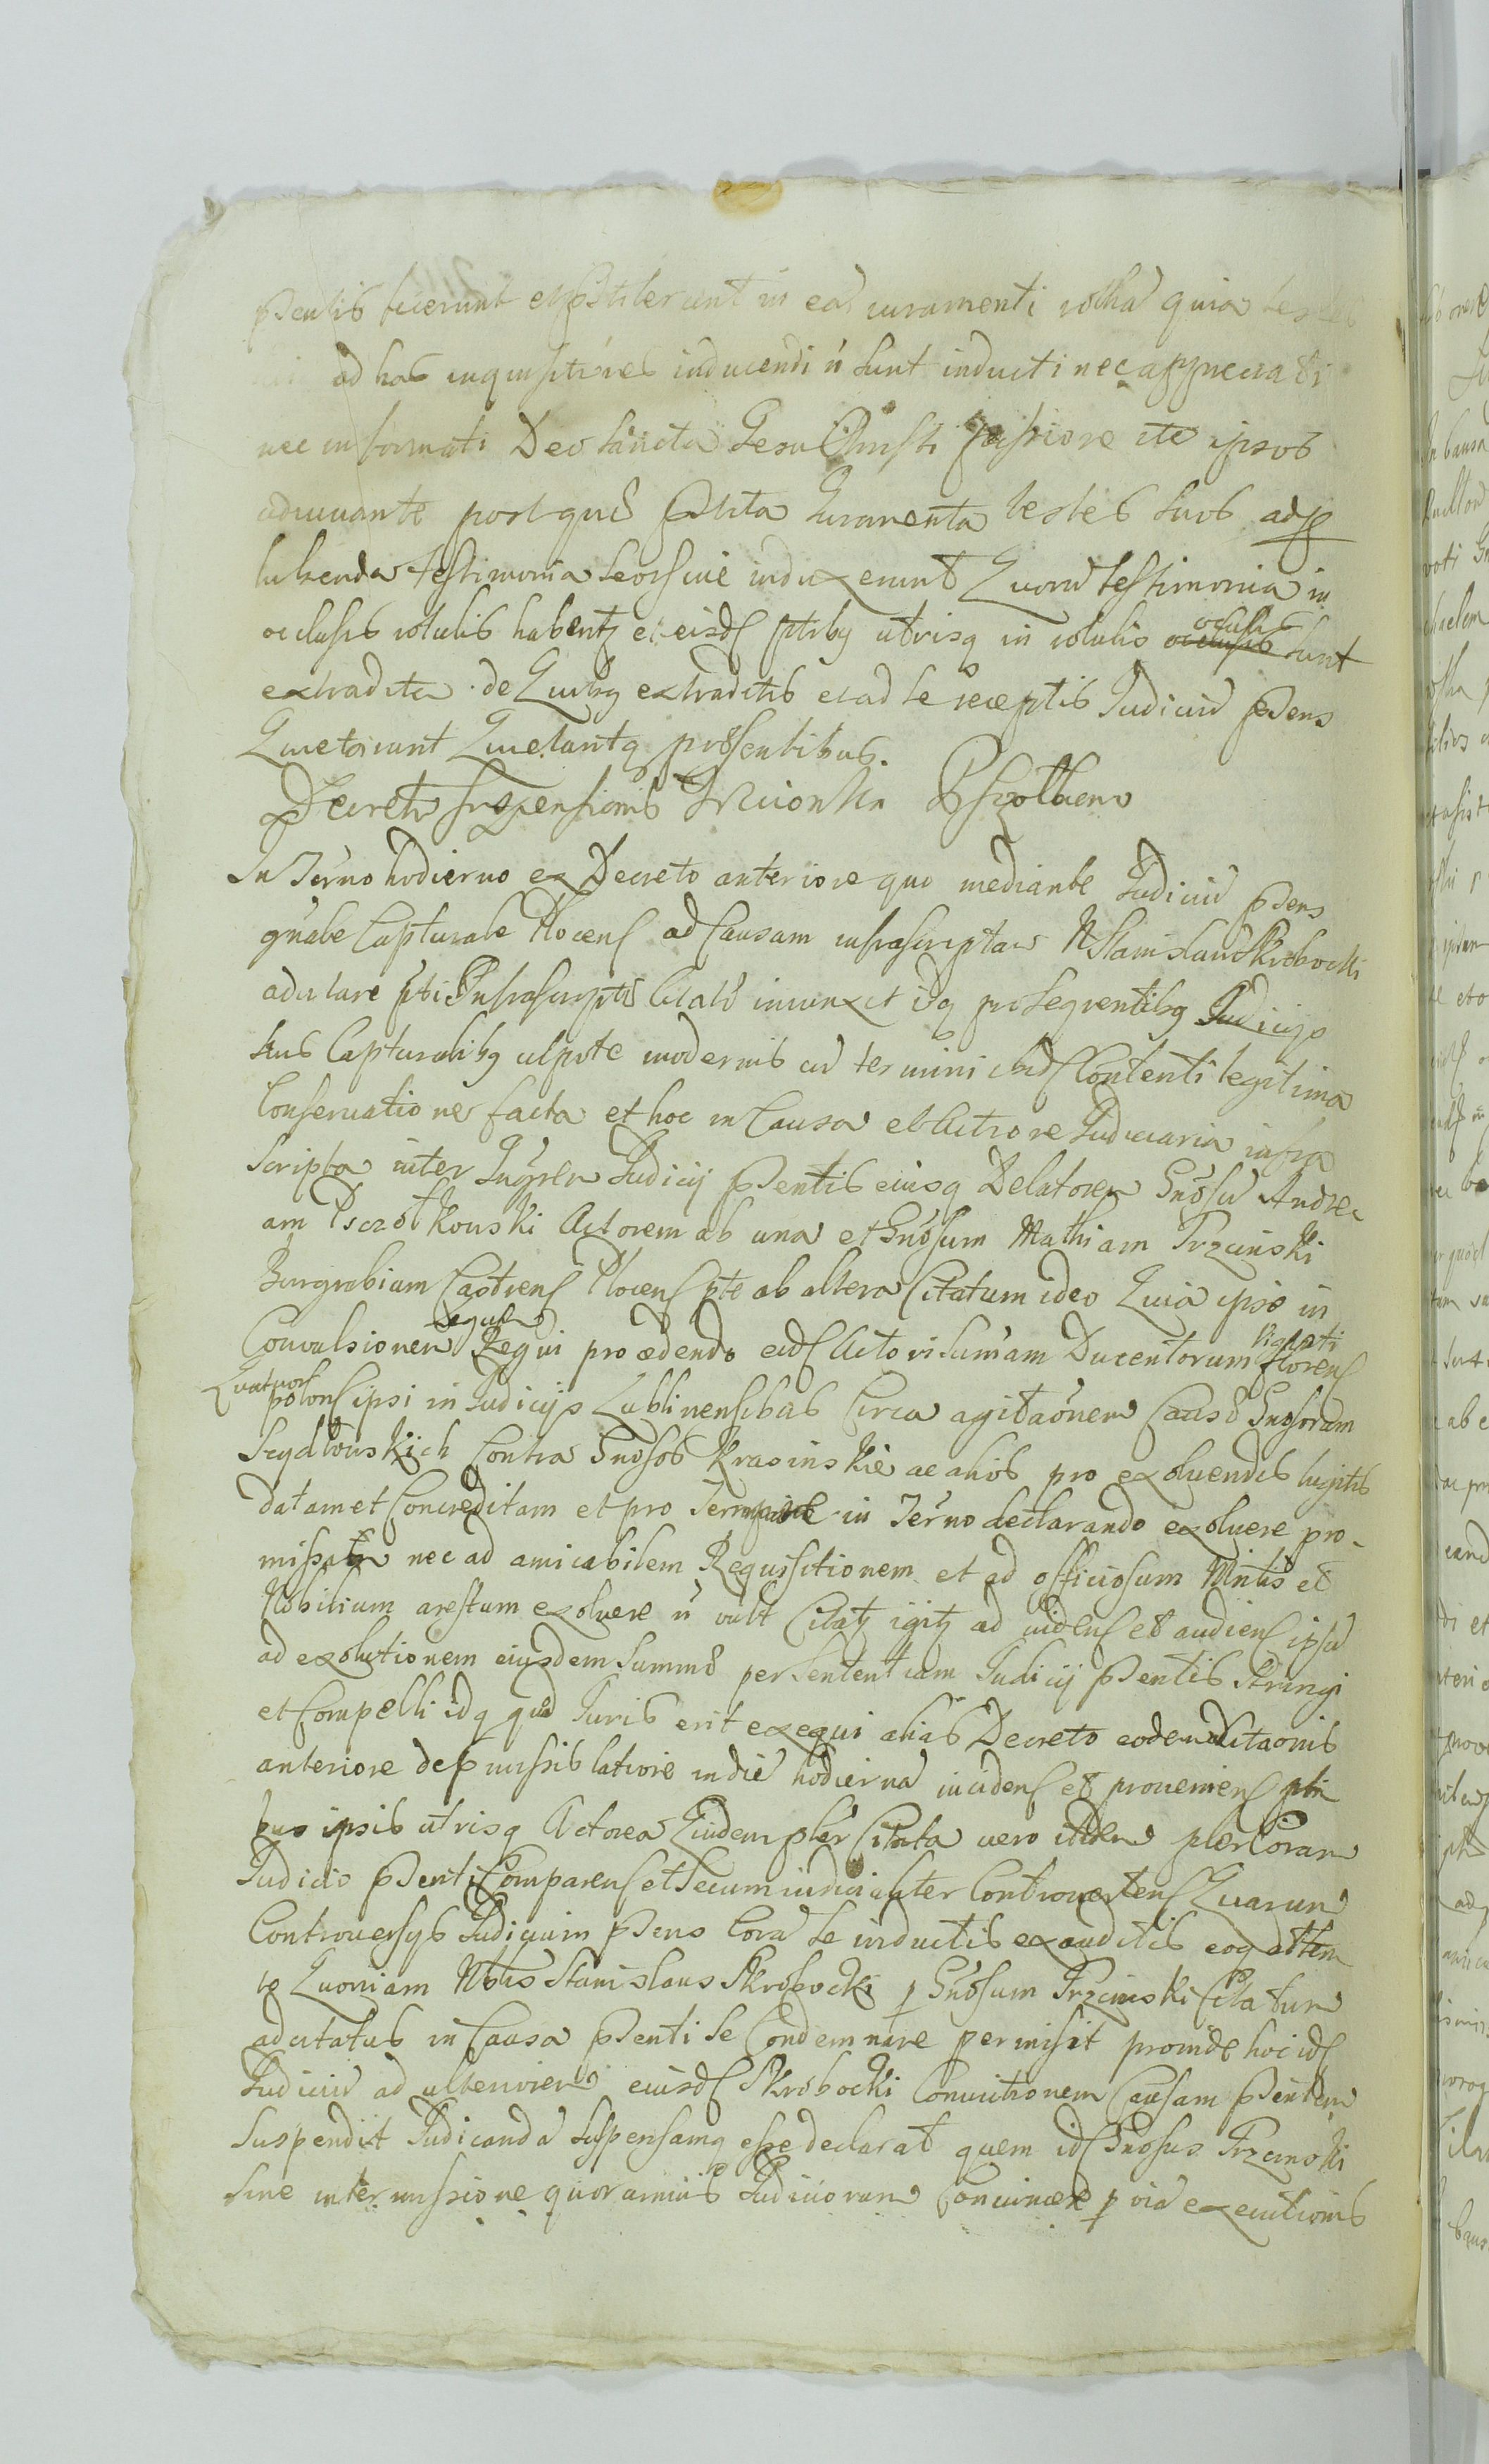 pntis fecerunt et pstiterunt in ead iuramenti rotha quia testes
ad has inquisitiones inducendi n sunt inducti nec appreciati
nec informati Deo sancta Iesu Christi passione ita ipsos
adiuuante post que pstita Iuramenta testes suos ad p
hibenda testimonia seorsiue induxerunt Quoru testimonia in
occlusis rotulis habentz et eisd ptibq utrisq in rotulis occlusis sunt
extradita de Quibq extraditis et ad se receptis Iudiciu pns
Quietarunt Quietantq psentibus.
Decretu suspensionis Trzcinski Psczolkow
In Termo hodierno ex Decreto anteriore quo mediante Iudiciu pns
gnale Capturale Plocens ad Causam infrascriptam N Stanislau Skrobocki
adcitare pti Infrascripte Citate iniunxit idq pro sequentibq Iudicijs
suis Capturalibq utpote modernis cu termini ibid Contenti legitima
Conseruatione facta et hoc in Causa et Actione Iudiciaria infra
scripta inter Instgrem Iudicij pntis eiusq Delatorem Gnosu Andre
am Psczołkowski Actorem ab una et Gnosum Mathiam Trzcinski
Burgrabium Castrens Plocens pte ab altera Citatum ideo Quia ipse in
Conuulsionem Regul
Regni pro edendo eid Actori summam Ducentorum Viginti florens
Quatuor
polons ipsi in Iudicijs Lublinensibus Circa agitaonem Causæ Gnosorum
Szydłowskich Contra Gnosos Krasinskie ac alios pro exoluendis
datam et Concreditam et pro Tempore in Termo declarando exoluere pro-
missam nec ad amicabilem Requisitionem et ad officiosum Mintis et
Nobilium arestum exoluere n vult Citatz igitz ad videns et audiens ipsu
ad exolutionem eiusdem summæ per sententiam Iudicij pntis stringi
et Compelli idq quod Iuris erit exequi alias Decreto eodem Citaonis
anteriore de pmissis latiore in die hodierna incidens et proueniens pti
bus ipsis utrisq Actorea Quidem psler Citata uero itidem psler Coram
Iudicio pnti Comparens et secum iudicialiter Controuertens Quarum
Controuersijs Iudicium pns Cora se inductis exauditis eoq attento
Quoniam Nblis Stanislaus Skrobocki p Gnosum Trzcinski Citatum
adcitatus in Causa pnti se Condemnare permisit proinde hoc id
Iudiciu ad ulteriorem eiusd Skrobocki Conuictionem Causam pntem
Suspendit Iudicanda suspensamq esse declarat quem id Gnosus Trzcinski
sine intermissione quoramuis Iudiciorum Conuincere p via executionis